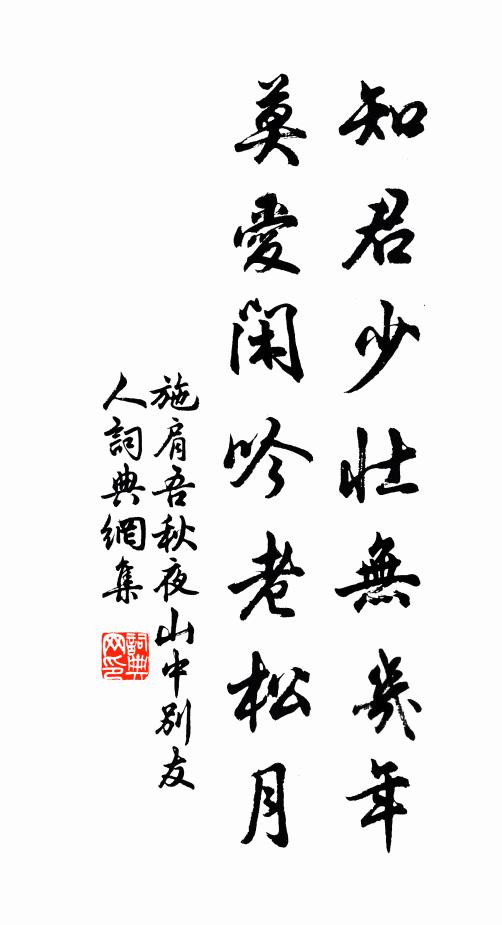 知君少壯無幾年
莫愛閑吟老松月
施肩吾秋夜山中別友
人詞典網集
詞典網印